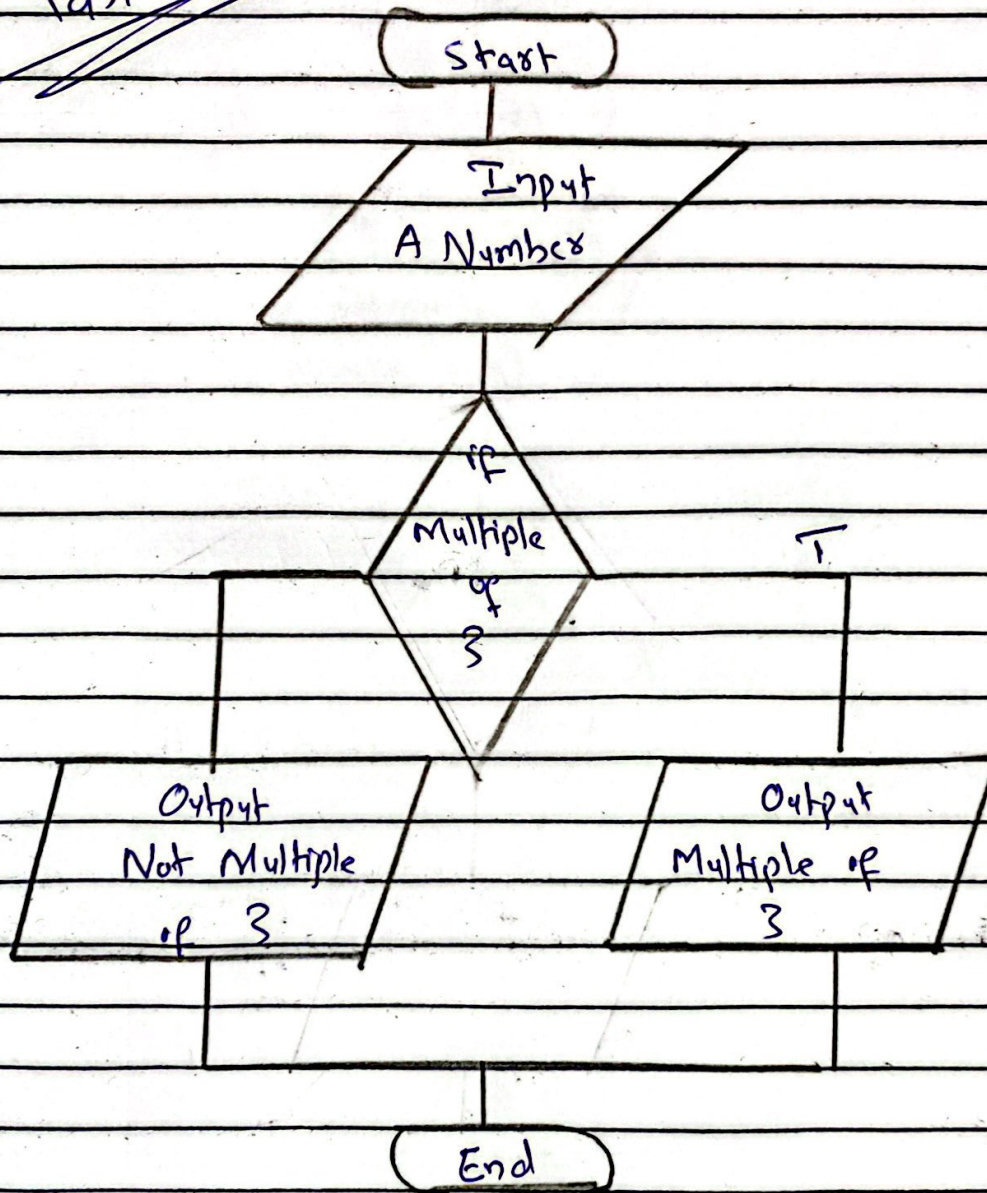 Start
Input
A Number
if
Multiple
of
3
T
Output
Not Multiple
of 3
Output
Multiple of
3
End